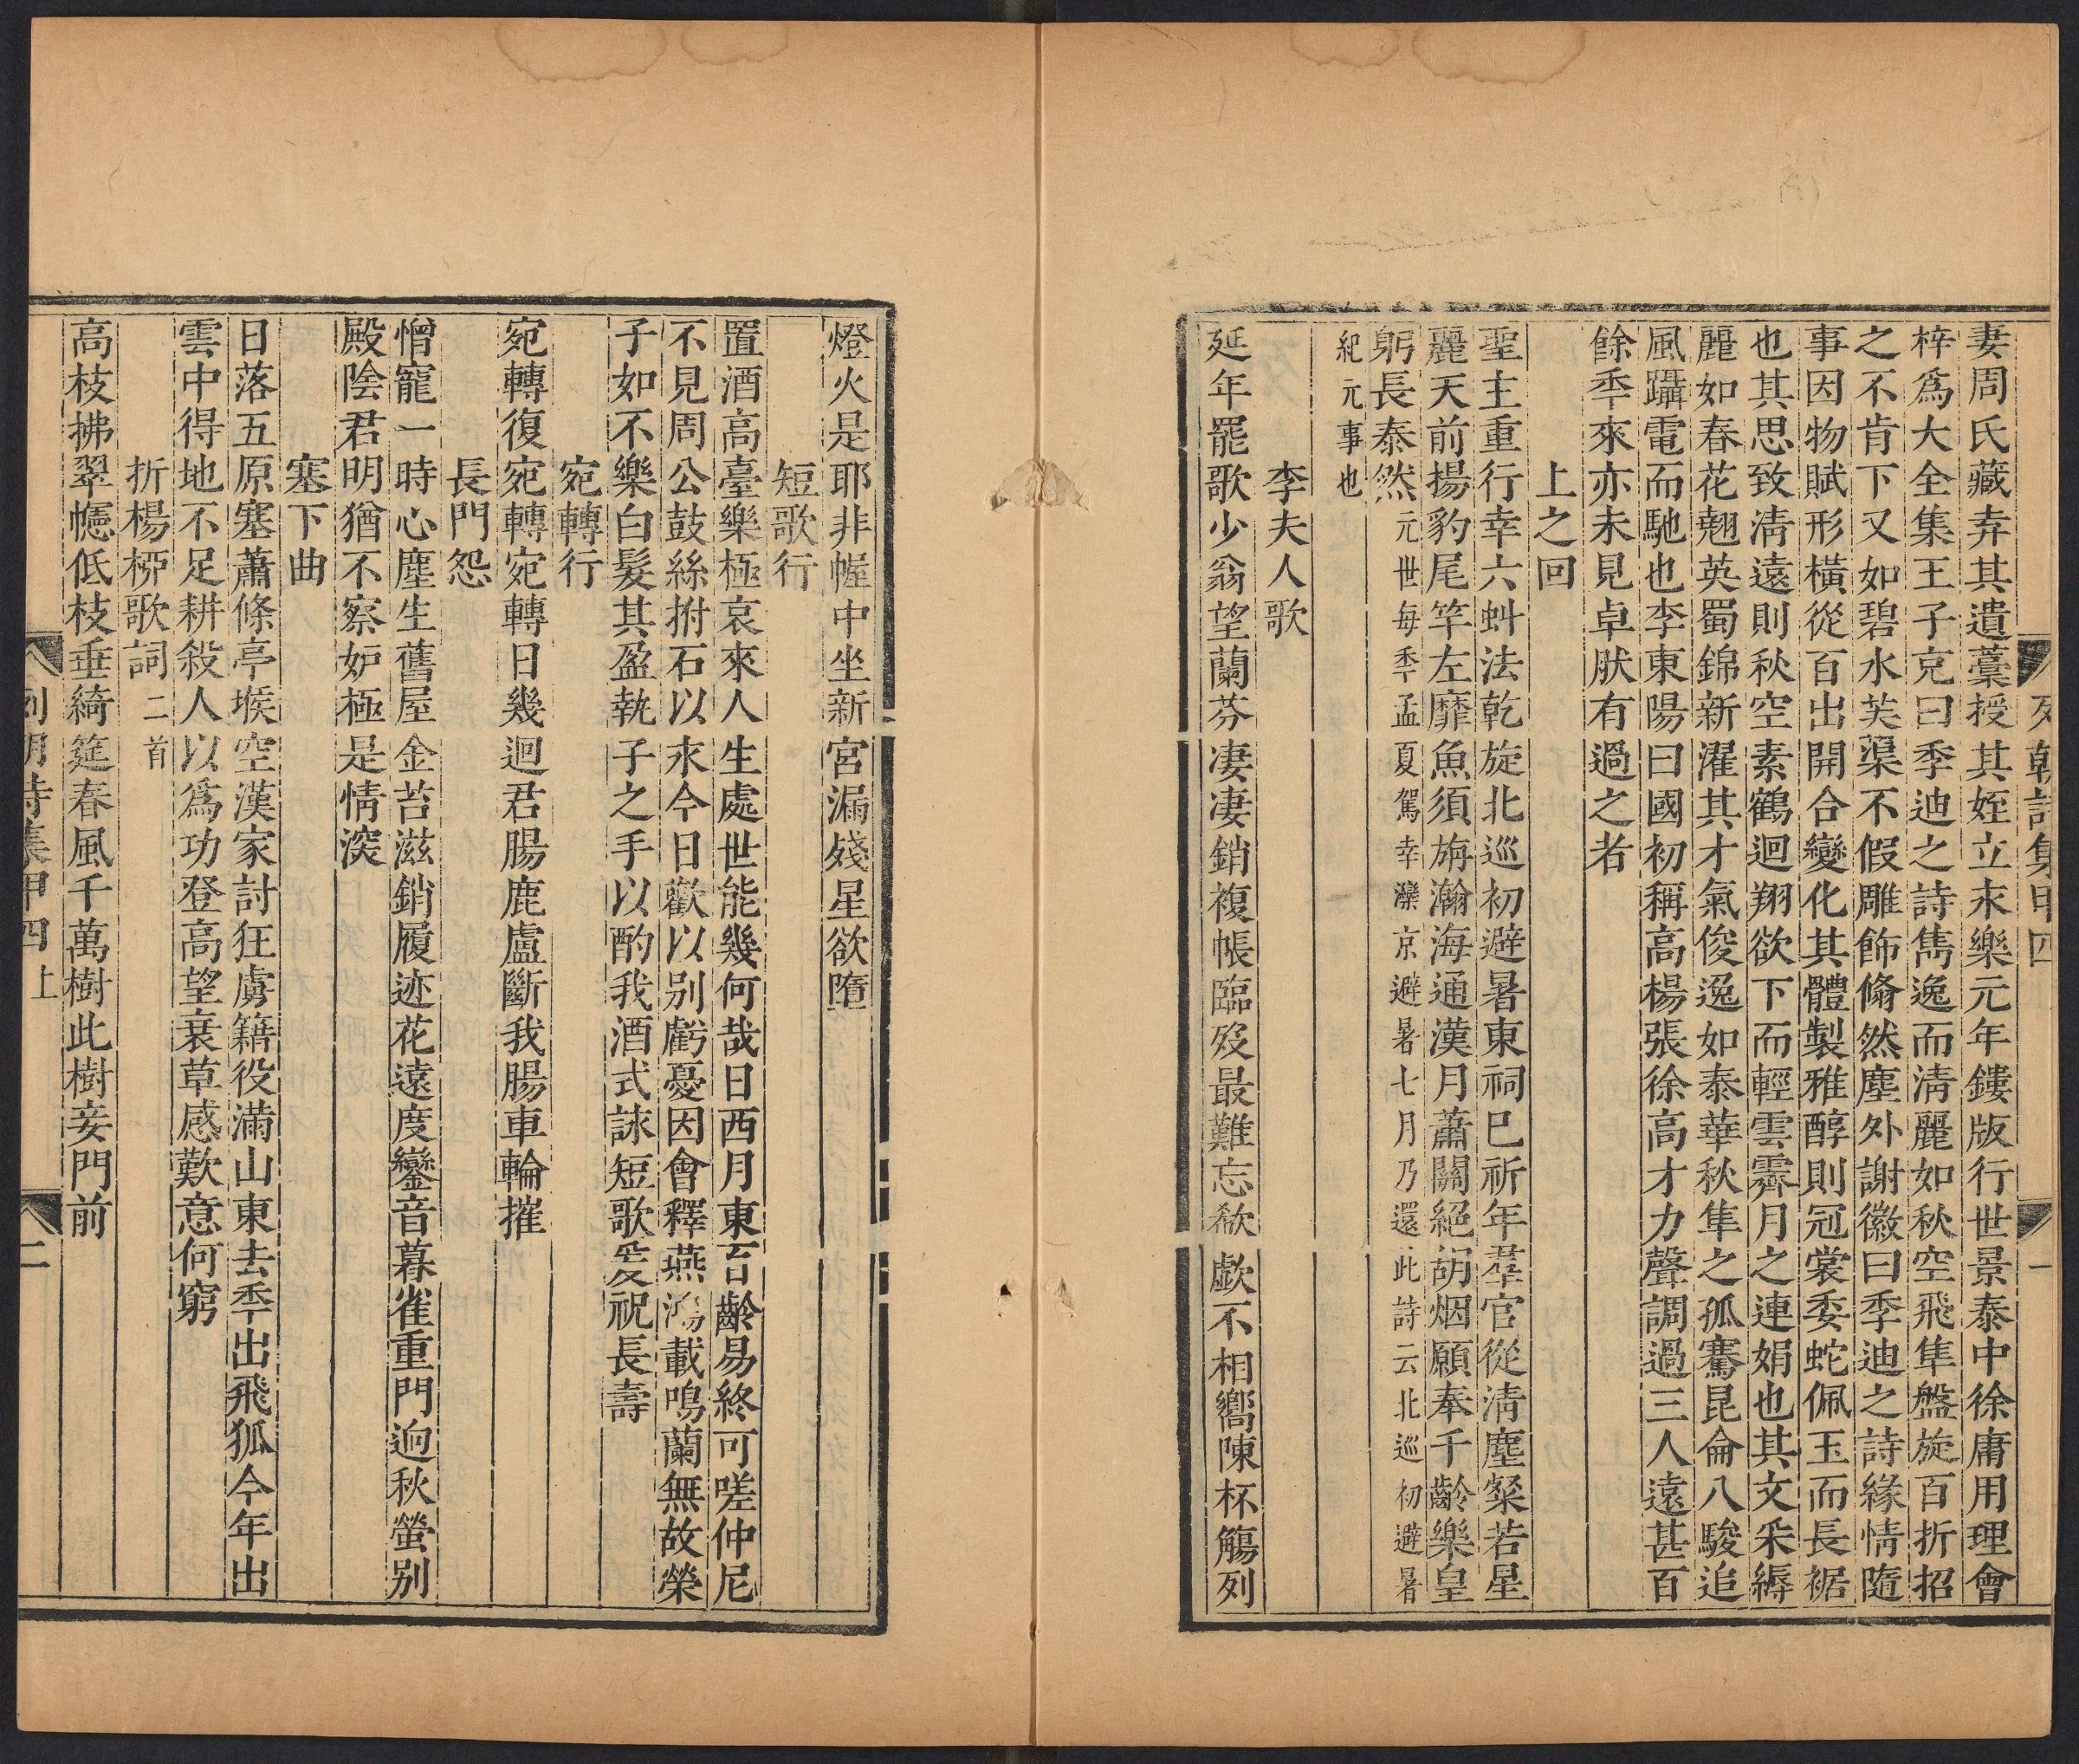 列朝詩集甲四
一
妻周氏藏弆其遺藁授其姪立永樂元年鏤版行世景泰中徐庸用理會
梓爲大全集王子充曰季迪之詩雋逸而淸麗如秋空飛隼盤旋百折招
之不肯下又如碧水芙蕖不假雕飾翛然塵外謝徽曰季迪之詩緣情隨
事因物賦形橫從百出開合變化其體製雅醇則冠裳委蛇佩玉而長裾
也其思致淸遠則秋空素鶴迴翔欲下而輕雲霽月之連娟也其文釆縟
麗如春花翹英蜀錦新濯其才氣俊逸如泰華秋隼之孤騫昆侖八駿追
風躡電而馳也李東陽曰國初稱高楊張徐高才力聲調過三人遠甚百
餘秊來亦未見卓肰有過之者
上之回
聖主重行幸六虯法乾旋北巡初避暑東祠巳祈年羣官從淸塵粲若星
麗天前揚豹尾竿左靡魚須旃瀚海通漢月蕭關絕胡烟願奉千齡樂皇
躬長泰然元世每秊孟夏駕幸灤京避暑七月乃還此詩云北巡初避暑
紀元事也
李夫人歌
延年罷歌少翁望蘭芬凄凄銷複帳臨歿最難忘欷歔不相嚮陳杯觴列
燈火是耶非幄中坐新宮漏殘星欲墮
短歌行
置酒高臺樂極哀來人生處世能幾何哉日西月東百齡易終可嗟仲尼
不見周公鼓絲拊石以永今日歡以别虧憂因會釋燕鴻載鳴蘭無故榮
子如不樂白髮其盈執子之手以酌我酒式詠短歌爰祝長壽
宛轉行
宛轉復宛轉宛轉日幾迴君腸鹿盧斷我腸車輪摧
長門怨
憎寵一時心塵生舊屋金苔滋銷履迹花遠度鑾音暮雀重門迥秋螢别
殿陰君明猶不察妒極是情湥
塞下曲
日落五原塞蕭條亭堠空漢家討狂虜籍役滿山東去秊出飛狐今年出
雲中得地不足耕殺人以爲功登高望衰草感歎意何窮
折楊桺歌詞二首
高枝拂翠幰低枝垂綺筵春風千萬樹此樹妾門前
列朝詩集甲四上
二